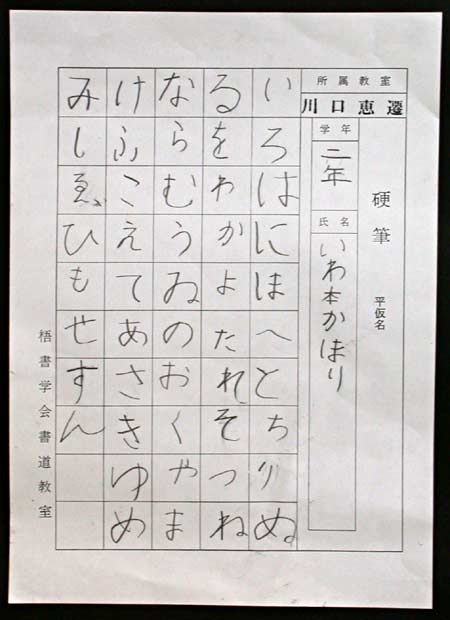 硬筆 平仮名
所属教室
川口恵遷
学年
二年
氏名
いわ本かほり
いろはにほへとちりぬ
るをわかよたれそつね
ならむうゐのおくやま
けふこえてあさきゆめ
みしゑひもせすん
梧書学会書道教室